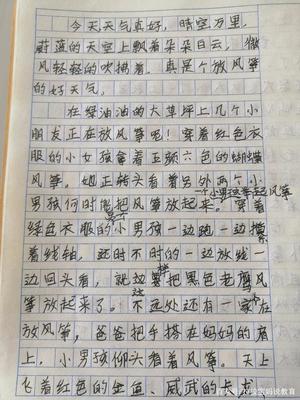 今天天气真好，晴空万里，
蔚蓝的天空上飘着朵朵白云，微
风轻轻的吹拂着。真是个放风筝
的好天气。
在绿油油的大草坪上几个小
朋友正在放风筝呢！穿着红色衣
服的小女孩拿着五颜六色的蝴蝶
风筝。她正转头看着另外两个小
男孩何时能把风筝放起来。穿着
绿色衣服的小男孩一边跑一边
着线轴，还时不时的一边放线一
边回头看，就边把黑色老鹰风
筝放起来了。不远处还有一家在
放风筝，爸爸把手搭在妈妈的肩
上，小男孩仰头看着风筝。天上
飞着红色的金鱼、威武的